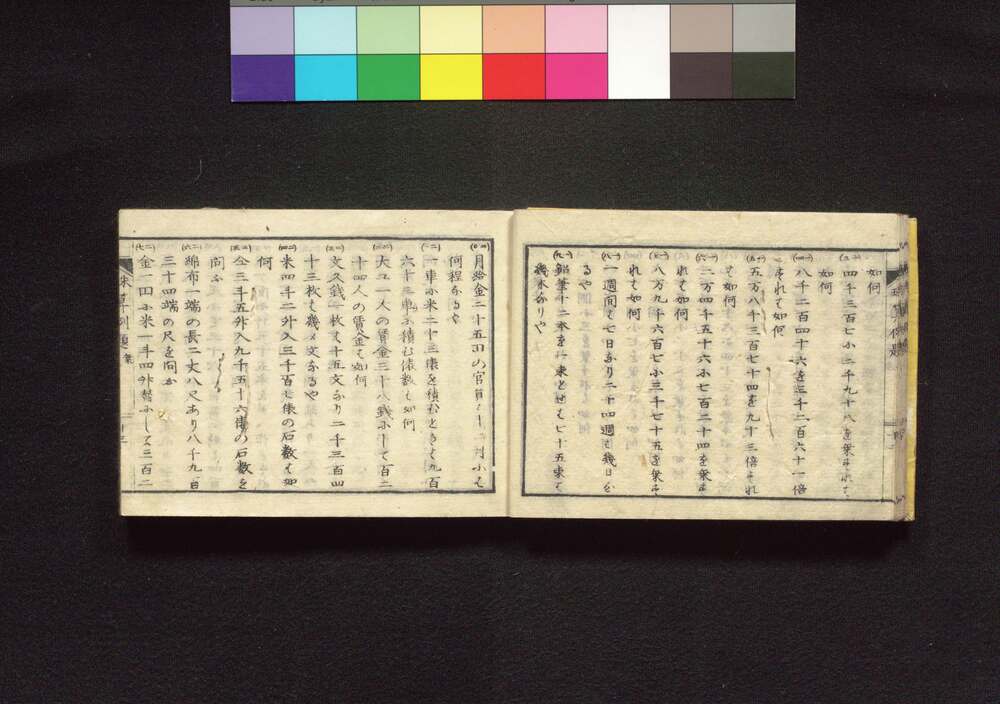 如何
(三一) 四千三百七小二千九十八を乗それハ
如何
(四一) 八千二百四十六を三千二百六十一倍
それて如何
(五一) 五万八千三百七十四を九十三倍それ
て如何
(六一) 二万四千五十六小七百二十四を乗そ
れて如何
(七一) 八万九千六百七小三千七十五を乗そ
れて如何
(八一) 一週間て七日なり二十四週て幾日な
るや
(九一) 鉛筆十二本を一束とせは七十五束て
幾本なりや
(〇二) 月給金二十五田の官員
何程なるや
(一二) 一車小米二十三俵を積むときて九百
六十三車小積む俵数て如何
(二二) 大工一人の賃金三十八銭小して百二
十四人の賃金て如何
(三二) 文久銭一枚て十五文なり二千三百四
十三枚て幾文なるや
(四二) 米四斗二升入三千百七俵の石数て如
何
(五二) 仝三斗五升入九千五十六俵の石数を
問ふ
(六二) 綿布一端の長二丈八尺あり八千九百
三十四端の尺を問ふ
(七二) 金一田小米一斗四升替小して三百二